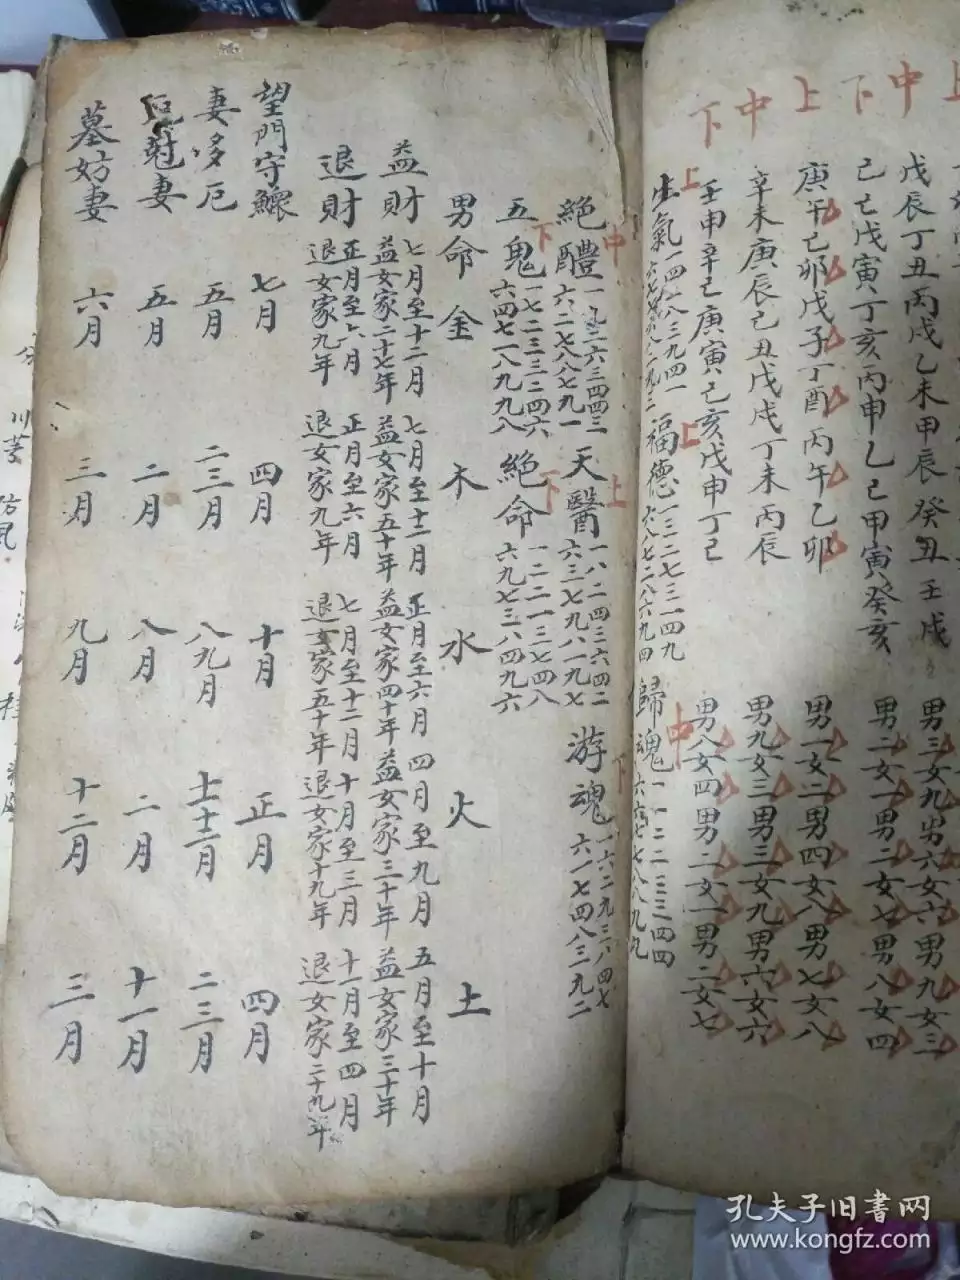 上中下上中下
戊辰丁丑丙戌乙未甲辰癸丑壬戌
男三女九男六女六男九女三
己巳戊寅丁亥丙申乙巳甲寅癸亥
男二女一男二女七男八女四
庚午己卯戊子丁酉丙午乙卯
男一女二男四女八男七女八
辛未庚辰己丑戊戌丁未丙辰
男九女三男三女九男六女六
壬申辛巳庚寅己亥戊申丁巳
男八女四男二女一男二女七
上
生氣一四二八三九四一
上
福德
一三二七三一四九
六八七二八六九四
中
歸魂一一二二三三四四
六六七七八八九九
中
絶體
六二七八八七九一
上
天醫一八二四三六四二
六三七九八一九七
下
游魂一六二九三八四七
六一七四八三九二
下
五鬼一七二三三二四六
六四七一八九九八
下
絶命一二二一三七四八
六九七三八四九六
男命 金 木 水 火 土
益財
七月至十二月
益女家二十七年
七月至十二月
益女家五十年
正月至六月
益女家四十年
四月至九月
益女家三十年
五月至十月
益女家三十年
退財
正月至六月
退女家九年
正月至六月
退女家九年
七月至十二月
退女家五十年
十月至三月
退女家十九年
十一月至四月
退女家二十九年
望門守鰥 七月 四月 十月 正月 四月
妻多厄 五月 二三月 八九月 十一十二月 二三月
妻 五月 二月 八月 二月 十一月
墓妨妻 六月 三月 九月 十二月 三月
川芎 防風
孔夫子旧書网
www.kongfz.com